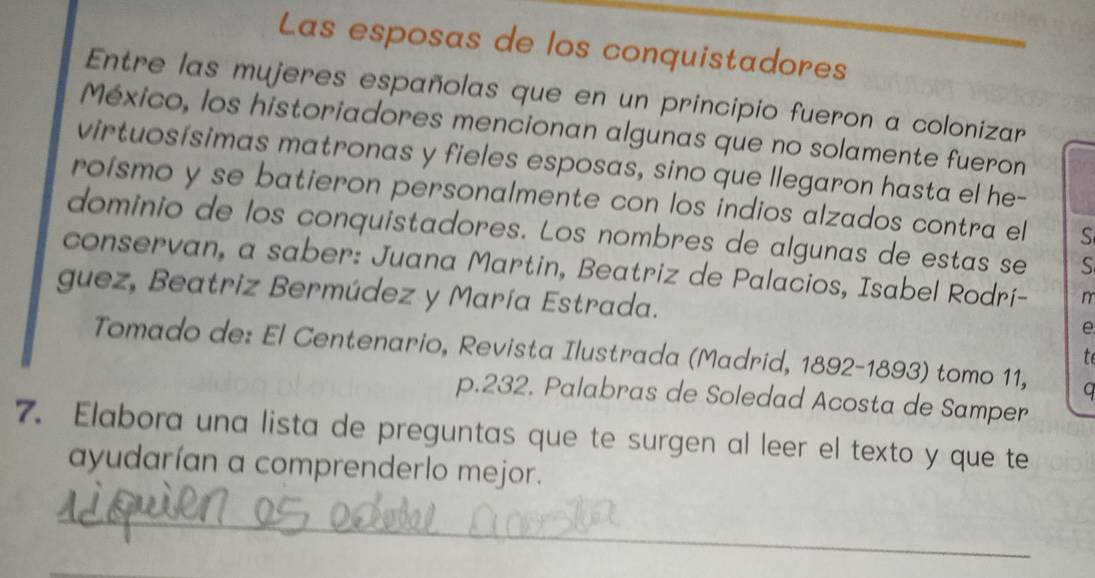 Las esposas de los conquistadores
Entre las mujeres españolas que en un principio fueron a colonizar
México, los historiadores mencionan algunas que no solamente fueron
virtuosísimas matronas y fieles esposas, sino que llegaron hasta el he-
roísmo y se batieron personalmente con los indios alzados contra el
dominio de los conquistadores. Los nombres de algunas de estas se
conservan, a saber: Juana Martin, Beatriz de Palacios, Isabel Rodrí-
guez, Beatriz Bermúdez y María Estrada.
Tomado de: El Centenario, Revista Ilustrada (Madrid, 1892-1893) tomo 11,
p.232. Palabras de Soledad Acosta de Samper
7. Elabora una lista de preguntas que te surgen al leer el texto y que te
ayudarían a comprenderlo mejor.
quien es acosta